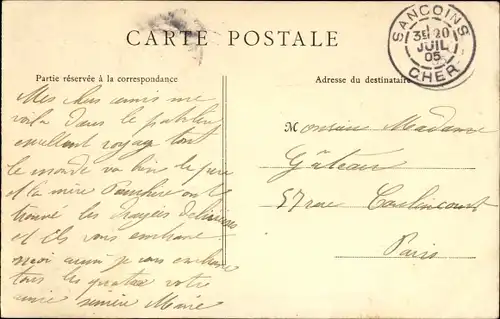 CARTE POSTALE
SANCOINS
3E 20
JUIL
05
CHER
Partie réservée à la correspondance
Adresse du destinataire
Mes chers amis me
voila dans le patelin
excellent voyage tout
le monde va bien le pere
et la mère on
trouvé les dragées delicieuses
et ils vous embrasse
moi aussi je vous embrasse
tous les quatre votre
amie sincère Marie
Monsieur Madame
Gâteau
57 rue Caulincourt
Paris